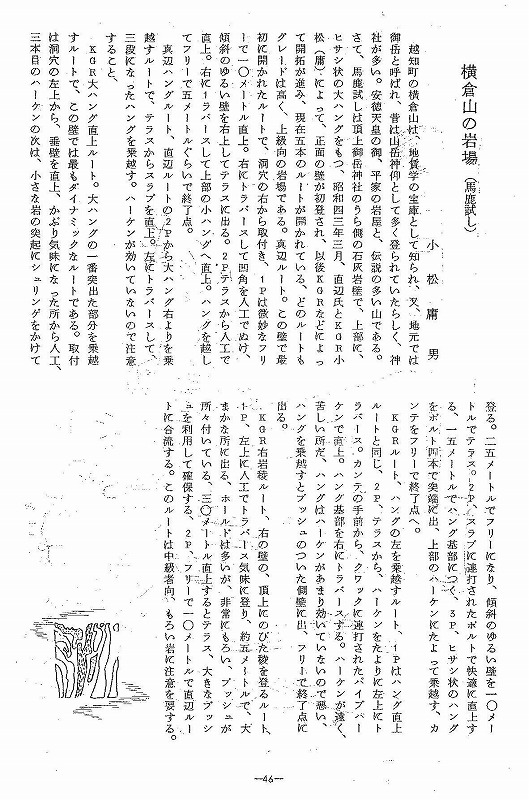 横倉山の岩場（馬鹿試し）
小松庸男
越知町の横倉山は、地質学の宝庫として知られ、又、地元では
御岳と呼ばれ、昔は山岳神仰として多く登られていたらしく、神
社が多い。安徳天皇の御、平家の岩屋と、伝説の多い山である。
さて、馬鹿試しは頂上御岳神社のうら側の石灰岩壁で、上部に、
ヒサシ状の大ハングをもつ、昭和四三年三月、直辺氏とＫＧＲ小
松（庸）によって、正面の壁が初登され、以後ＫＧＲなどによっ
て開拓が進み、現在五本のルートが開かれている、どのルートも
グレードは高く、上級向の岩場である。真辺ルート。この壁で最
初に開かれたルートで、洞穴の右から取付き、１Ｐは微妙なフリ
ーで一〇メートル直上。右にトラバースして凹角を人工でぬけ、
傾斜のゆるい壁を右上してテラスに出る。２Ｐテラスから人工で
直上。右にトラバースして上部の小ハングへ直上。ハングを越し
てフリーで五メートルぐらいで終了点。
真辺ハングルート、直辺ルートの２Ｐから大ハング右よりを乗
越すルートで、テラスからスラブを直上。左にトラバースして、
三段になったハングを乗越す。ハーケンが効いていないので注意
すること、
ＫＧＲ大ハング直上ルート。大ハングの一番突出た部分を乗越
すルートで、この壁では最もダイナミックなルートである。取付
は洞穴の左上から、垂壁を直上、かぶり気味になった所から人工、
三本目のハーケンの次は、小さな岩の突起にシュリンゲをかけて
登る。二五メートルでフリーになり、傾斜のゆるい壁を一〇メー
トルでテラス。２Ｐ、スラブに連打されたボルトで快適に直上す
る、一五メートルでハング基部につく、３Ｐ、ヒサシ状のハング
をボルト四本で突端に出、上部のハーケンにたよって乗越す、カ
ンテをフリーで終了点へ。
ＫＧＲルート、ハングの左を乗越すルート、１Ｐはハング直上
ルートと同じ、２Ｐ、テラスから、ハーケンをたよりに左上にト
ラバース。カンテの手前から、クワックに連打されたパイプバー
ケンで直上。ハング基部を右にトラバースする。ハーケンが遠く、
苦しい所だ、ハングはハーケンがあまり効いていないので悪い、
ハングを乗越すとブッシュのついた側壁に出、フリーで終了点に
出る。
ＫＧＲ右岩稜ルート、右の壁の、頂上にのびた稜を登るルート、
１Ｐ、左上に人工でトラバース気味に登り、約五メートルで、大
まかな所に出る、ホールドは多いが、非常にもろい、ブッシュが
所々付いている、三〇メートル直上するとテラス、大きなブッシ
ュを利用して確保する、２Ｐ、フリーで一〇メートルで直辺ルー
トに合流する。このルートは中級者向、もろい岩に注意を要する。
—46—